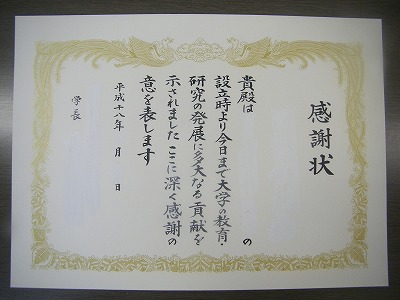 感謝状
貴殿は　の
設立時より今日まで大学の教育・
研究の発展に多大なる貢献を
示されました ここに深く感謝の
意を表します
平成十八年　月　日
学長